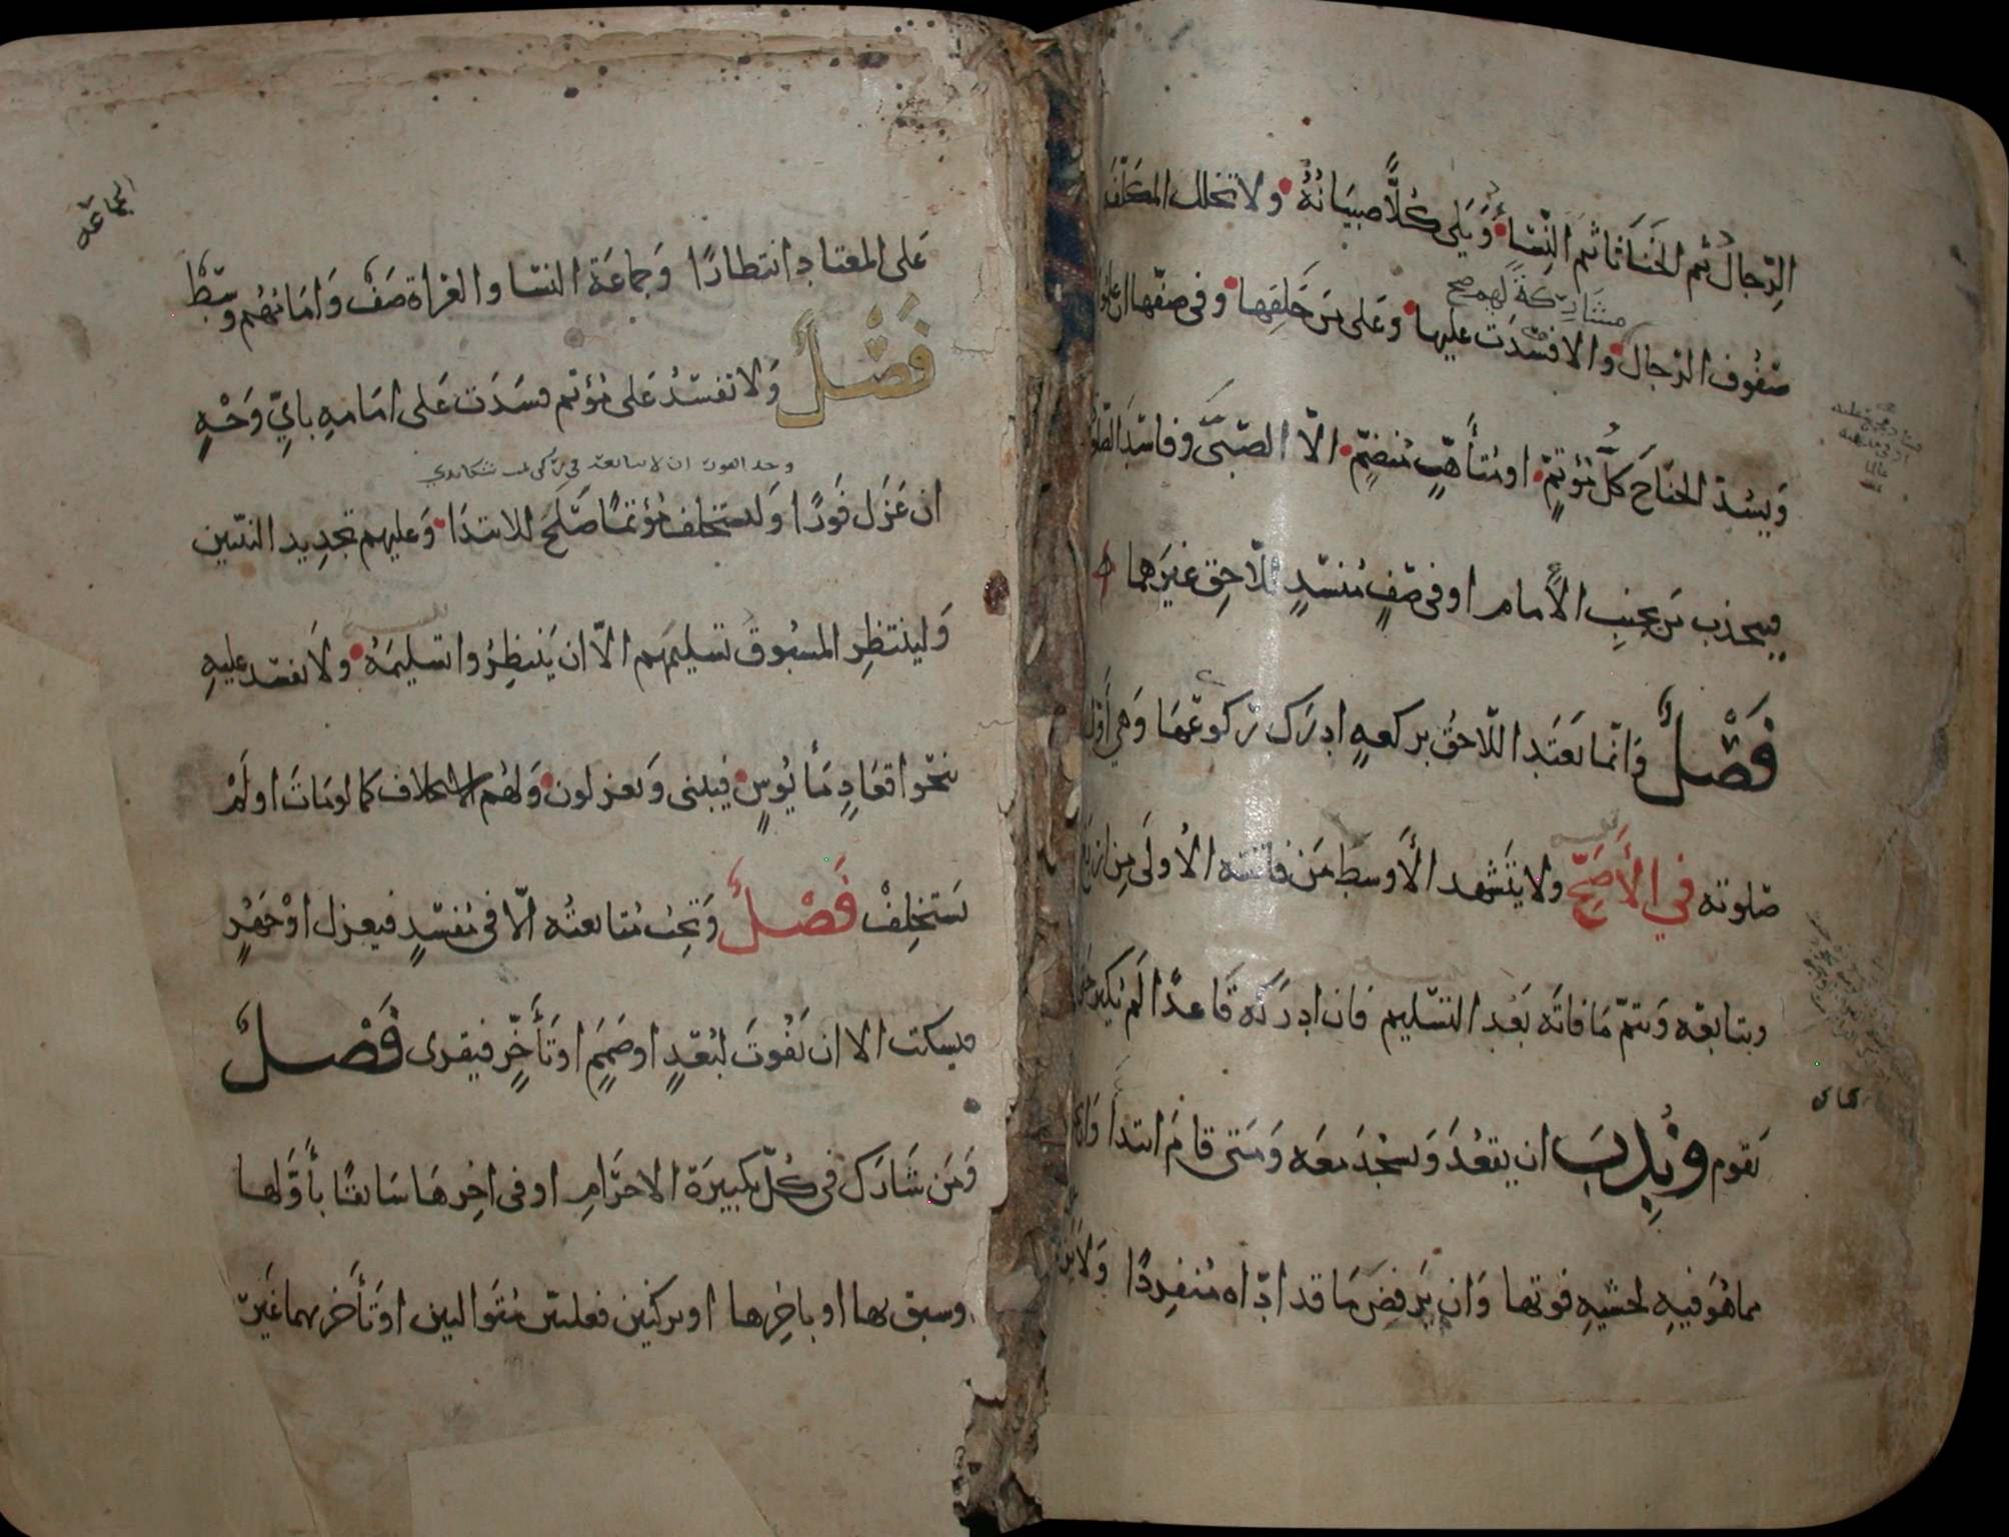 الرِّجالُ ثم الخَنَاثَا ثم النِّسَاءُ وَيَلي كُلًّا صبيَانُهُ ولا تخلل المكلّفَة
مشَارِكةً لَهم صح
صفُوف الرجال والا فسدَت عليها وعَلى مَن خَلفِها وفى صفّها ان علموا
وَيسُدّ الجنَاحَ كلُّ مُؤتمٍّ او مُتأهّبٍ مُنضمٍّ الّا الصّبَيَّ وفاسِدَ الصّلاة
فيجذب مَن بجنب الأمام او فى صَفٍ مُنسَدٍ للّاحِقِ غيرَهما
فَصْلٌ وَانّما يَعتَد اللّاحقُ بركعهٍ ادرَك ركوعَها وَهي أوّل
صَلوته في الأَصَحِّ ولا يتَشهد الأَوسط مَن فاتته الأُولى مِن اربَع
ويتابعه وَيتمّ مَا فاتَه بَعْد التّسليم فان ادرَكَه قَاعدًا لم يكبر حَتى
يَقوم وَنُدِبَ ان يقعُدَ وَيسْجُدَ معَه وَمَتى قامَ ابتدأ وَان
مما هُوَ فيهِ لخشيهِ فوتها وَان يَرفضَ مَا قد ادّاه مُنفِردًا وَلَا يزد
الجماعَه
عَلى المعتاد انتظارًا وَجماعَة النسَا والعُرَاة صَفٌ وَامَامُهم وسَطٌ
فَصْلٌ وَلا تفسُدُ عَلى مُؤتم فسَدَت عَلى امَامهِ بايِّ وَجْهٍ
ان عَزَل فَورًا وَليستخلف مُؤتمًا صَلَحَ للابتدَا وَعليهم تجدِيد النيّتين
وَلينتظِرِ المسبُوقُ تسليمَهم الّا ان يَنتظِرُوا تسليمَهُ ولَا تفسد عليهِ
بنحو اقعَادٍ مَأيُوسٍ فيبنى وَيعزلون وَلهُم الاستخلاف كما لو مَاتَ او لَمْ
يَستخلِفْ فَصْلٌ وَتجبُ مُتَابعتُه الّا فى مُفسدٍ فيعزل اوْ جَهرٍ
فيسكت الا ان يَفُوتَ لبُعْدٍ او صَمَمٍ او تَأخّرٍ فيقرى فَصْلٌ
وَمَن شَارَك فى كُلّ تكبيرَة الاحرَامِ او فى اخِرهَا سَابقًا بأوّلها
وسبق بها او باخِرها او بركنين فعليَّين مُتَوالين او تَأخّر بهما غَير